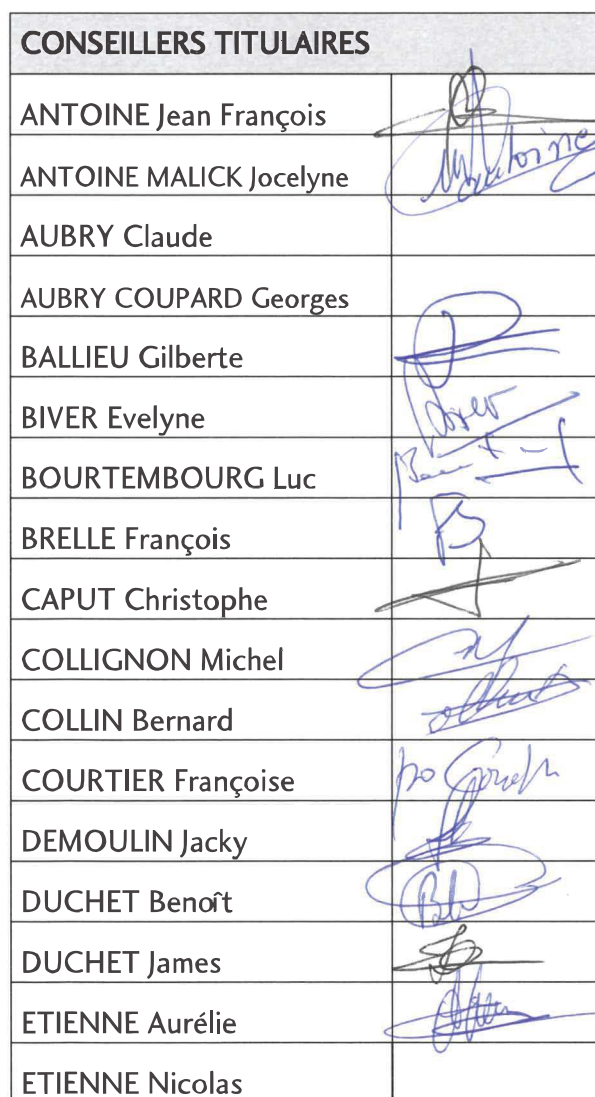 CONSEILLERS TITULAIRES
ANTOINE Jean François
ANTOINE MALICK Jocelyne Antoine
AUBRY Claude
AUBRY COUPARD Georges
BALLIEU Gilberte
BIVER Evelyne
BOURTEMBOURG Luc
BRELLE François
CAPUT Christophe
COLLIGNON Michel
COLLIN Bernard
COURTIER Françoise po
DEMOULIN Jacky
DUCHET Benoît
DUCHET James
ETIENNE Aurélie
ETIENNE Nicolas